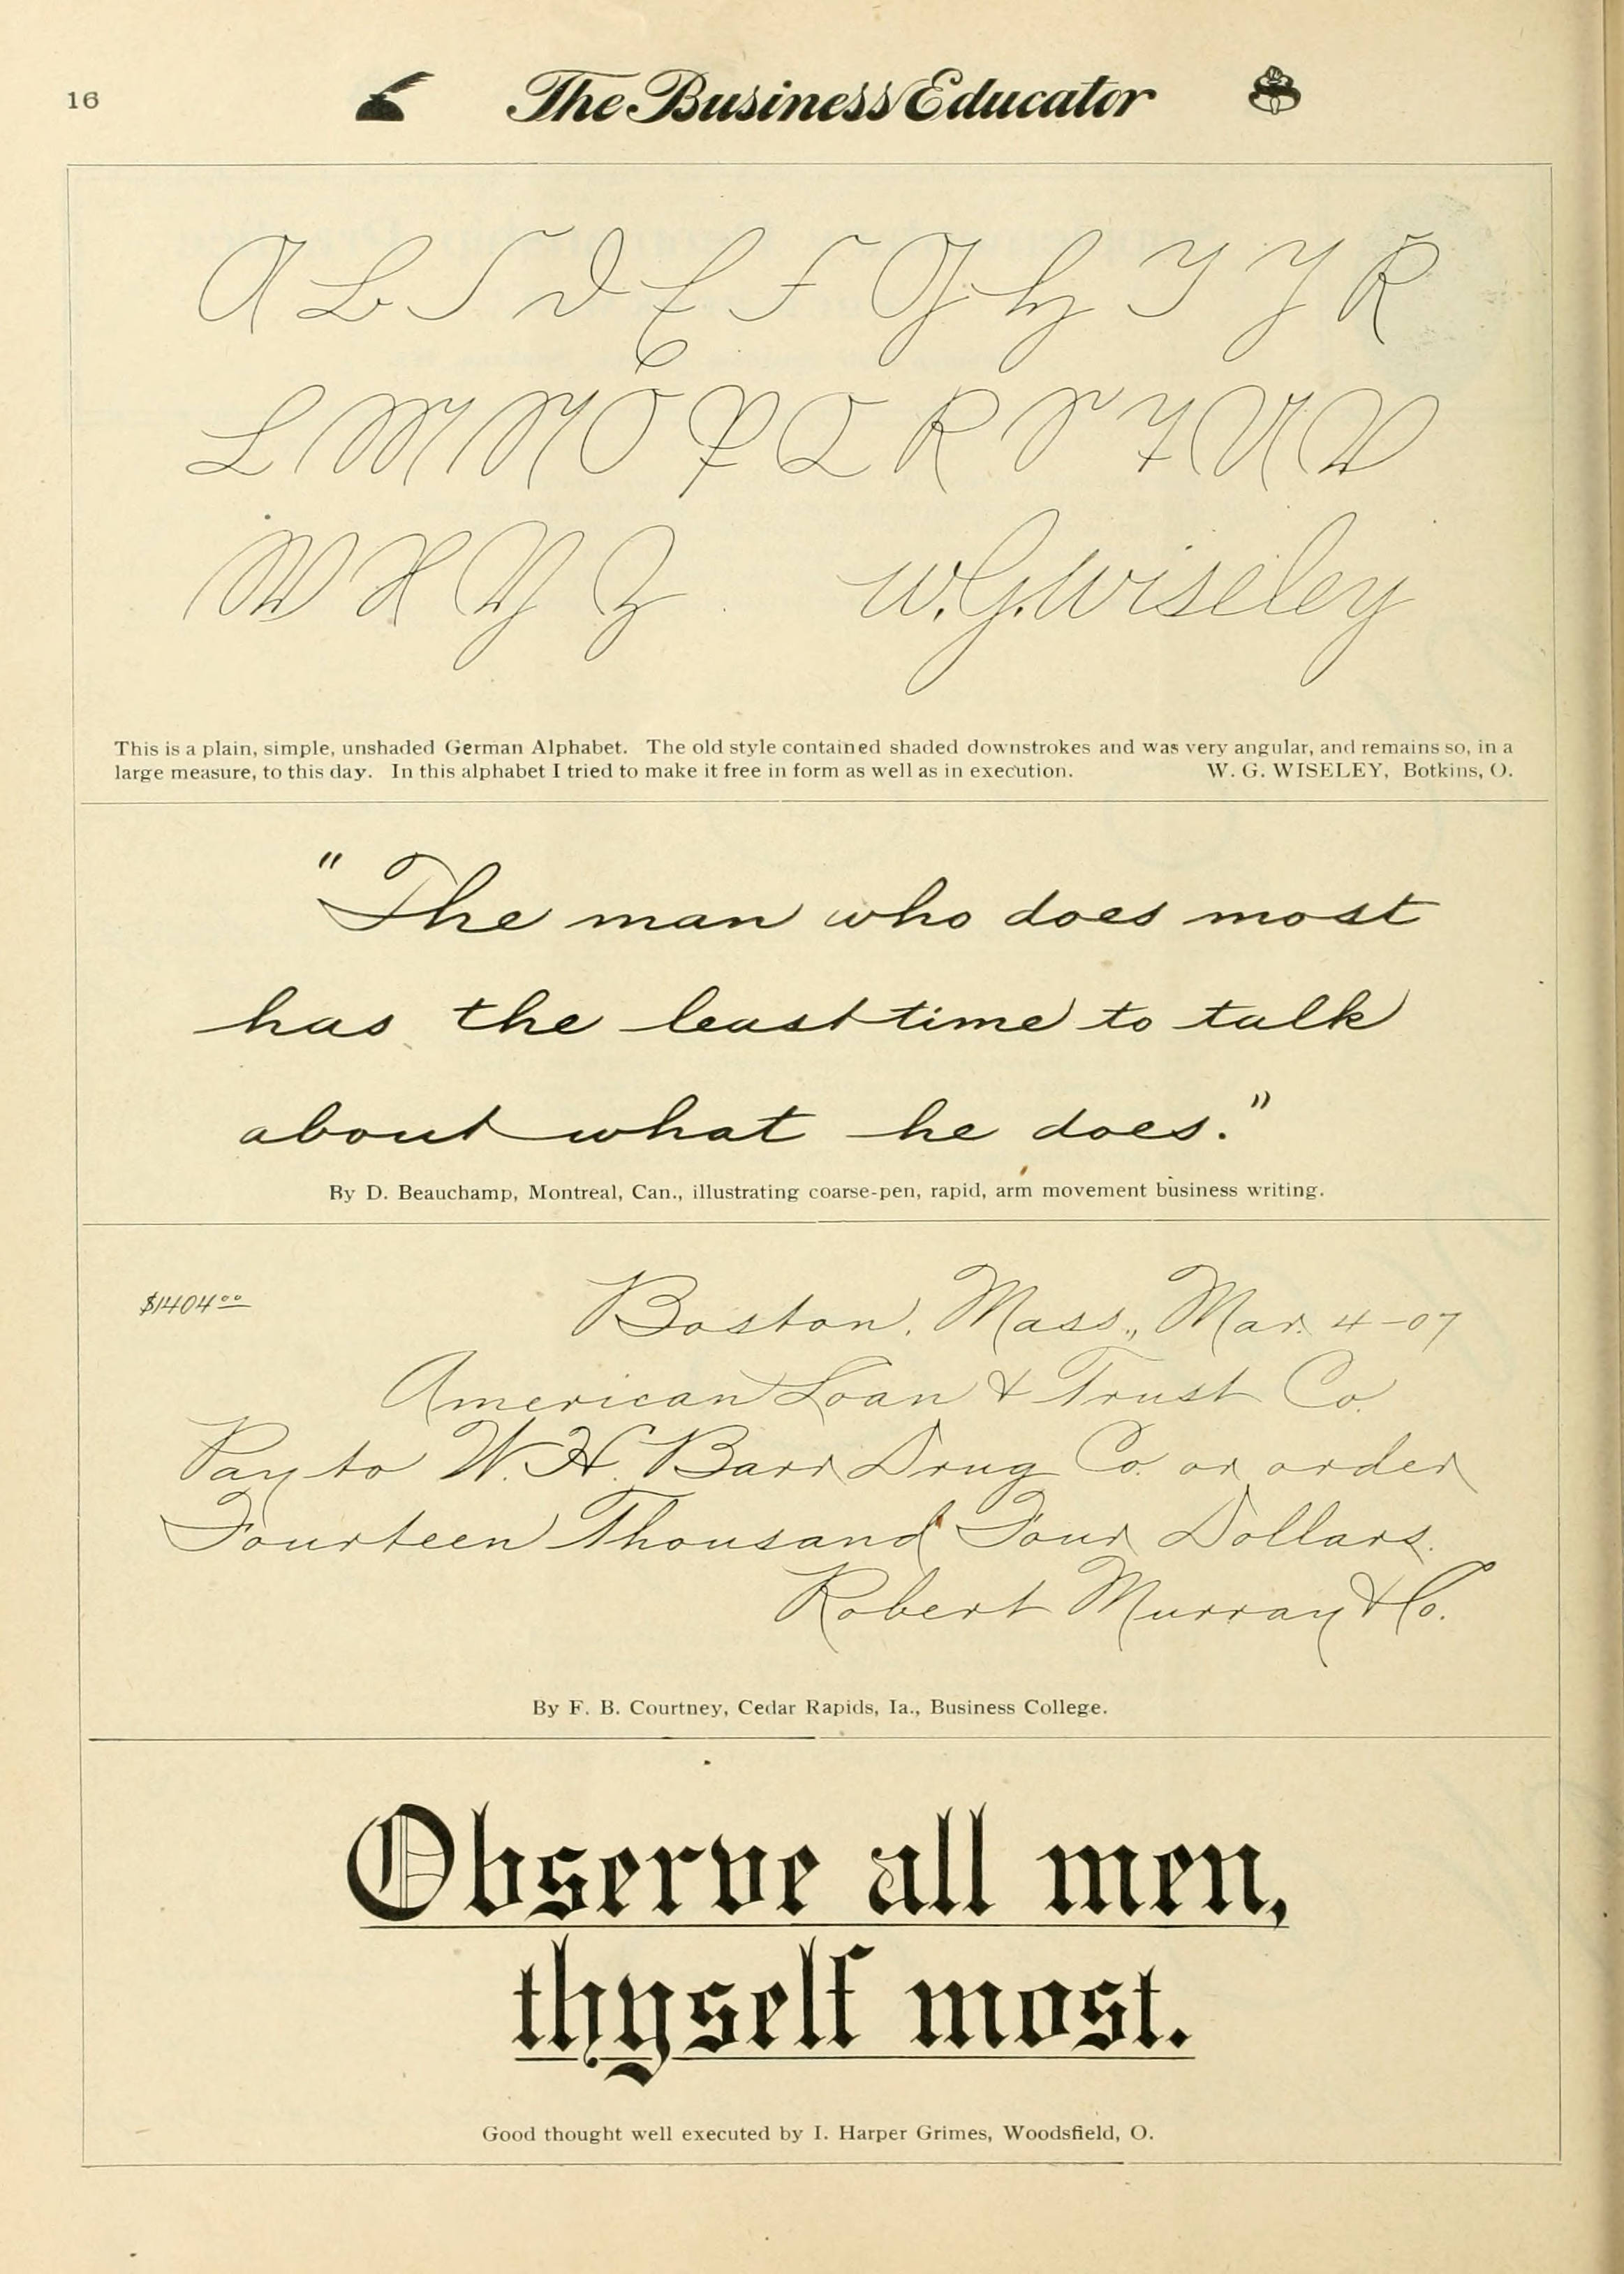 16
The Business Educator
A B C D E F G H I J K
L M N O P Q R S T U V
W X Y Z W. G. Wiseley
This is a plain, simple, unshaded German Alphabet. The old style contained shaded downstrokes and was very angular, and remains so, in a
large measure, to this day. In this alphabet I tried to make it free in form as well as in execution. W. G. WISELEY, Botkins, O.
"The man who does most
has the least time to talk
about what he does."
By D. Beauchamp, Montreal, Can., illustrating coarse-pen, rapid, arm movement business writing.
$1404 00 Boston, Mass., Mar. 4-07
American Loan & Trust Co.
Pay to W. H. Barr Drug Co. or order
Fourteen Thousand Four Dollars.
Robert Murray & Co.
By F. B. Courtney, Cedar Rapids, Ia., Business College.
Observe all men,
thyself most.
Good thought well executed by I. Harper Grimes, Woodsfield, O.